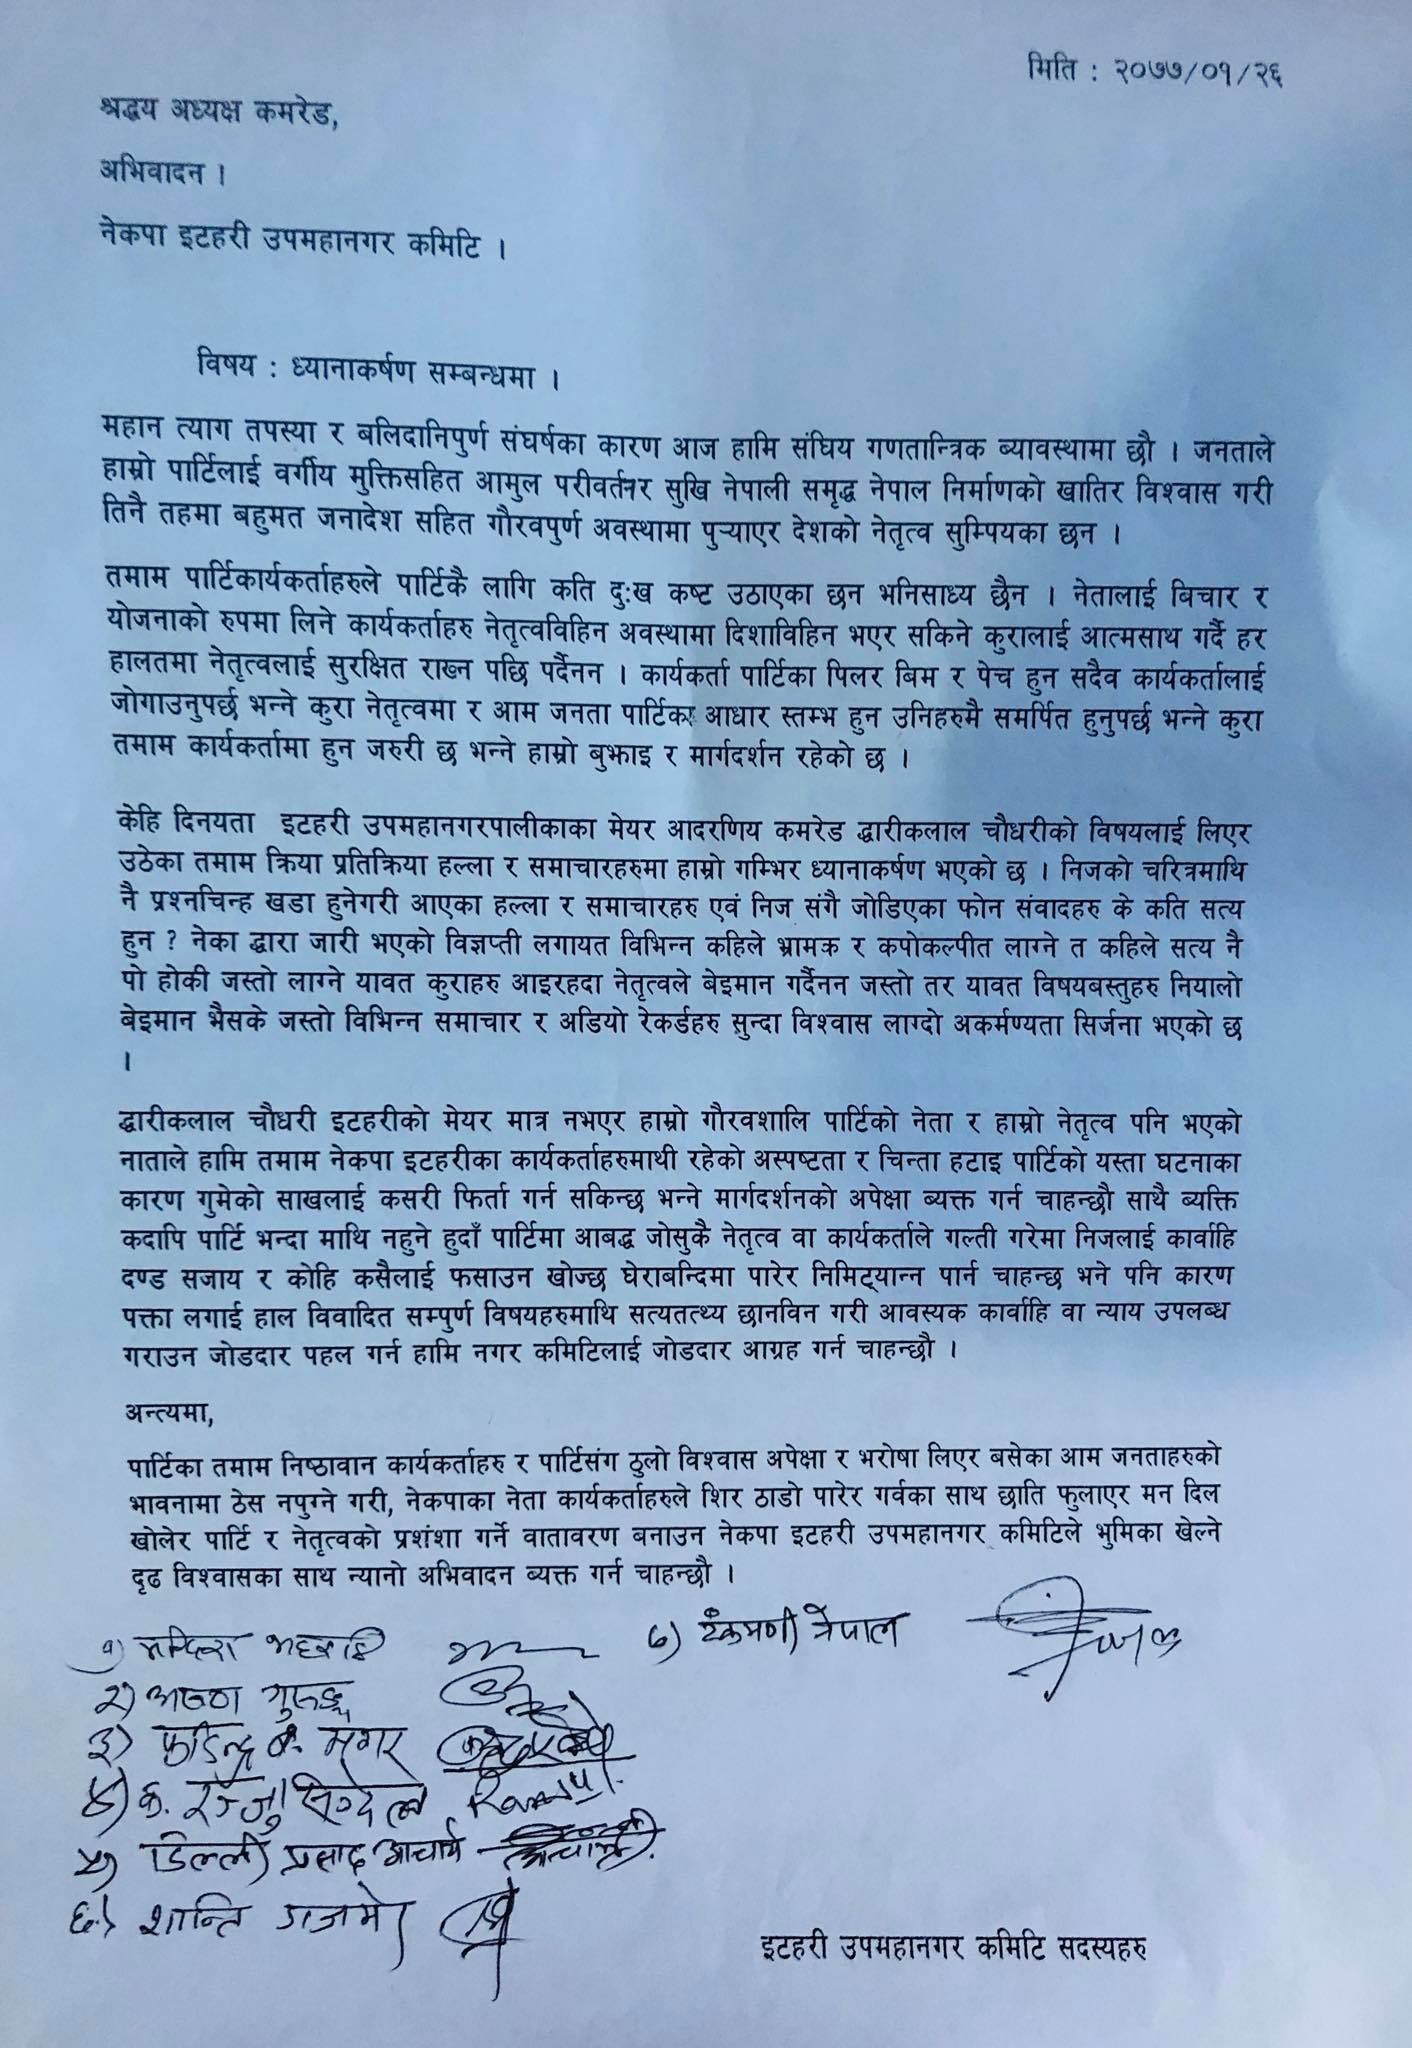 मिति : २०७७/०१/२६
श्रद्धय अध्यक्ष कमरेड,
अभिवादन ।
नेकपा इटहरी उपमहानगर कमिटि ।
विषय : ध्यानाकर्षण सम्बन्धमा ।
महान त्याग तपस्या र बलिदानिपुर्ण संघर्षका कारण आज हामि संघिय गणतान्त्रिक ब्यावस्थामा छौ । जनताले
हाम्रो पार्टिलाई वर्गीय मुक्तिसहित आमुल परीवर्तनर सुखि नेपाली समृद्ध नेपाल निर्माणको खातिर विश्वास गरी
तिनै तहमा बहुमत जनादेश सहित गौरवपुर्ण अवस्थामा पुर्‍याएर देशको नेतृत्व सुम्पियका छन ।
तमाम पार्टिकार्यकर्ताहरुले पार्टिकै लागि कति दुःख कष्ट उठाएका छन भनिसाध्य छैन । नेतालाई विचार र
योजनाको रुपमा लिने कार्यकर्ताहरु नेतृत्वविहिन अवस्थामा दिशाविहिन भएर सकिने कुरालाई आत्मसाथ गर्दै हर
हालतमा नेतृत्वलाई सुरक्षित राख्न पछि पर्दैनन । कार्यकर्ता पार्टिका पिलर बिम र पेच हुन सदैव कार्यकर्तालाई
जोगाउनुपर्छ भन्ने कुरा नेतृत्वमा र आम जनता पार्टिका आधार स्तम्भ हुन उनिहरुमै समर्पित हुनुपर्छ भन्ने कुरा
तमाम कार्यकर्तामा हुन जरुरी छ भन्ने हाम्रो बुझाइ र मार्गदर्शन रहेको छ ।
केहि दिनयता इटहरी उपमहानगरपालीकाका मेयर आदरणिय कमरेड द्धारीकलाल चौधरीको विषयलाई लिएर
उठेका तमाम क्रिया प्रतिक्रिया हल्ला र समाचारहरुमा हाम्रो गम्भिर ध्यानाकर्षण भएको छ । निजको चरित्रमाथि
नै प्रश्नचिन्ह खडा हुनेगरी आएका हल्ला र समाचारहरु एवं निज संगै जोडिएका फोन संवादहरु के कति सत्य
हुन ? नेका द्धारा जारी भएको विज्ञप्ती लगायत विभिन्न कहिले भ्रामक र कपोकल्पीत लाग्ने त कहिले सत्य नै
पो होकी जस्तो लाग्ने यावत कुराहरु आइरहदा नेतृत्वले बेइमान गर्दैनन जस्तो तर यावत विषयबस्तुहरु नियालो
बेइमान भैसके जस्तो विभिन्न समाचार र अडियो रेकर्डहरु सुन्दा विश्वास लाग्दो अकर्मण्यता सिर्जना भएको छ
।
द्धारीकलाल चौधरी इटहरीको मेयर मात्र नभएर हाम्रो गौरवशालि पार्टिको नेता र हाम्रो नेतृत्व पनि भएको
नाताले हामि तमाम नेकपा इटहरीका कार्यकर्ताहरुमाथी रहेको अस्पष्टता र चिन्ता हटाइ पार्टिको यस्ता घटनाका
कारण गुमेको साखलाई कसरी फिर्ता गर्न सकिन्छ भन्ने मार्गदर्शनको अपेक्षा ब्यक्त गर्न चाहन्छौ साथै ब्यक्ति
कदापि पार्टि भन्दा माथि नहुने हुदाँ पार्टिमा आबद्ध जोसुकै नेतृत्व वा कार्यकर्ताले गल्ती गरेमा निजलाई कार्वाहि
दण्ड सजाय र कोहि कसैलाई फसाउन खोज्छ घेराबन्दिमा पारेर निमिट्यान्न पार्न चाहन्छ भने पनि कारण
पक्ता लगाई हाल विवादित सम्पुर्ण विषयहरुमाथि सत्यतत्थ्य छानविन गरी आवस्यक कार्वाहि वा न्याय उपलब्ध
गराउन जोडदार पहल गर्न हामि नगर कमिटिलाई जोडदार आग्रह गर्न चाहन्छौ ।
अन्त्यमा,
पार्टिका तमाम निष्ठावान कार्यकर्ताहरु र पार्टिसंग ठुलो विश्वास अपेक्षा र भरोषा लिएर बसेका आम जनताहरुको
भावनामा ठेस नपुग्ने गरी, नेकपाका नेता कार्यकर्ताहरुले शिर ठाडो पारेर गर्वका साथ छाति फुलाएर मन दिल
खोलेर पार्टि र नेतृत्वको प्रशंशा गर्ने वातावरण बनाउन नेकपा इटहरी उपमहानगर कमिटिले भुमिका खेल्ने
दृढ विश्वासका साथ न्यानो अभिवादन ब्यक्त गर्न चाहन्छौ ।
१)
७) टंकमणी नेपाल
२) गुरुङ्ग
३) फडिन्द्र ब. मगर
४) क. रञ्जु सिग्देल
५) डिल्ली प्रसाद आचार्य
६) शान्ति गजमेर
इटहरी उपमहानगर कमिटि सदस्यहरु